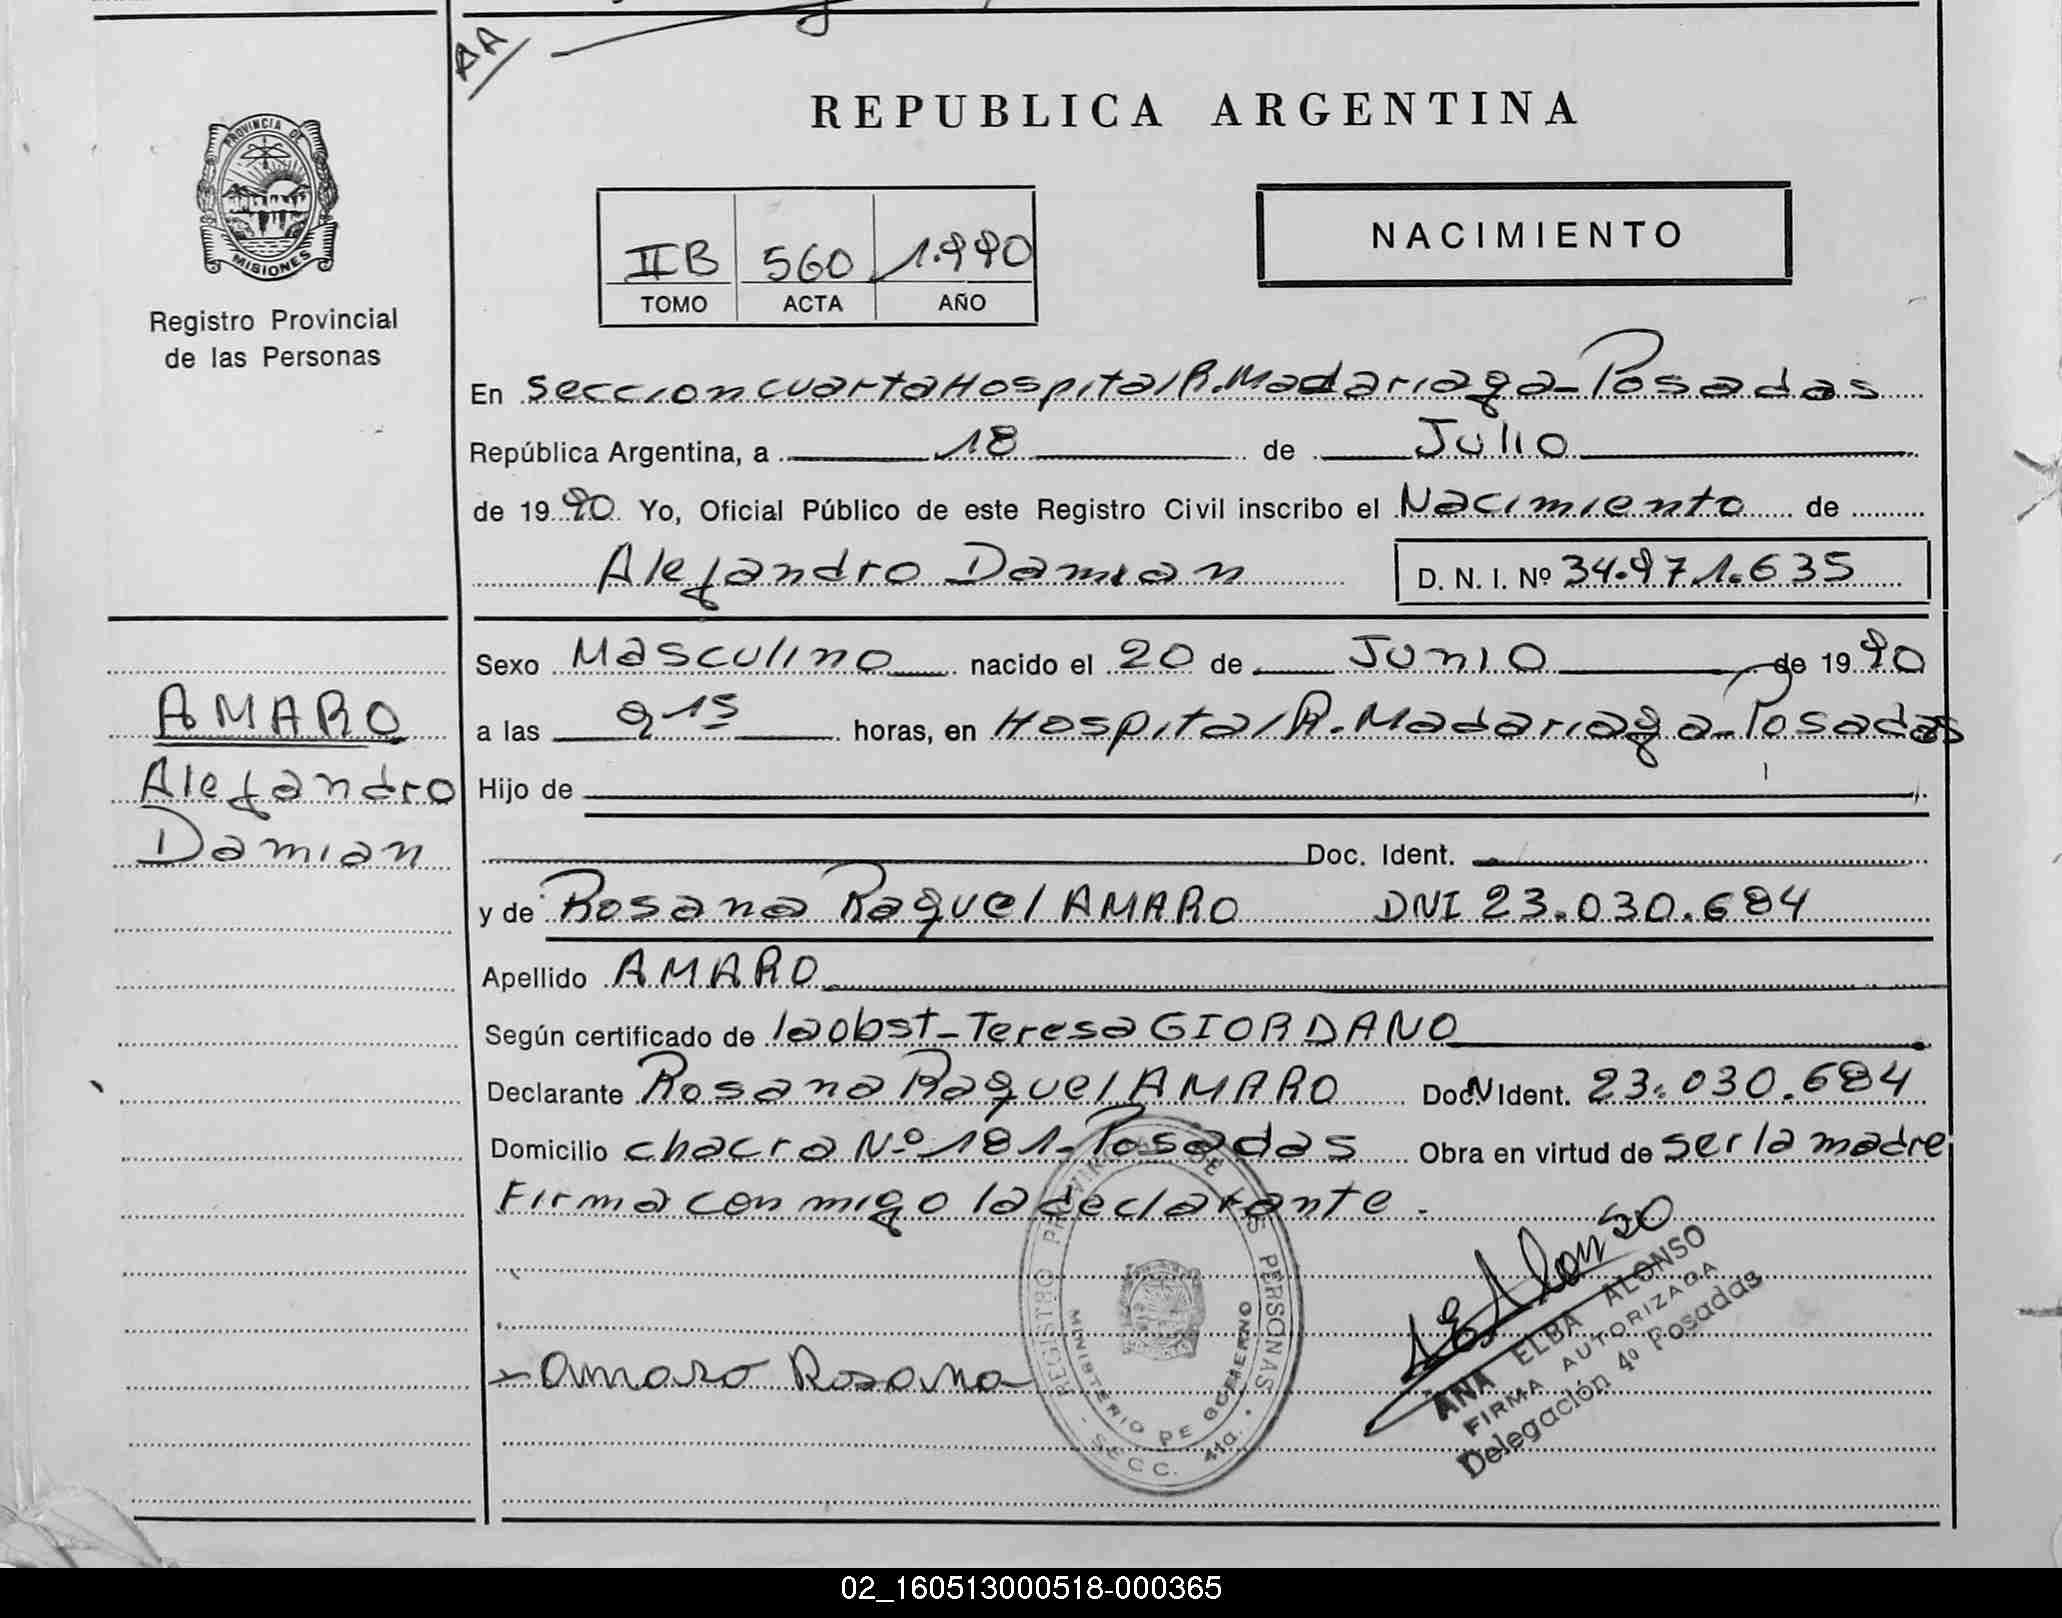 AA
REPUBLICA ARGENTINA
PROVINCIA DE
MISIONES
Registro Provincial
de las Personas
IIB 560 1.990
TOMO ACTA AÑO
NACIMIENTO
En seccion cuarta Hospital R. Madariaga - Posadas
República Argentina, a 18 de Julio
de 1990 Yo, Oficial Público de este Registro Civil inscribo el Nacimiento de
Alejandro Damian D. N. I. Nº 34.971.635
Sexo Masculino nacido el 20 de Junio de 1990
AMARO
Alejandro
Damian
a las 9 15 horas, en Hospital R. Madariaga - Posadas
Hijo de
Doc. Ident.
y de Rosana Raquel AMARO DNI 23.030.684
Apellido AMARO
Según certificado de la obst - Teresa GIORDANO
Declarante Rosana Raquel AMARO Doc. Ident. 23.030.684
Domicilio chacra Nº 181 - Posadas Obra en virtud de ser la madre
Firma con migo la declarante .
x Amaro Rosana
REGISTRO PROVINCIAL DE LAS PERSONAS
MINISTERIO DE GOBIERNO
SECC. 4ta.
AEAlonso
ANA ELBA ALONSO
FIRMA AUTORIZADA
Delegación 4º Posadas
02_160513000518-000365